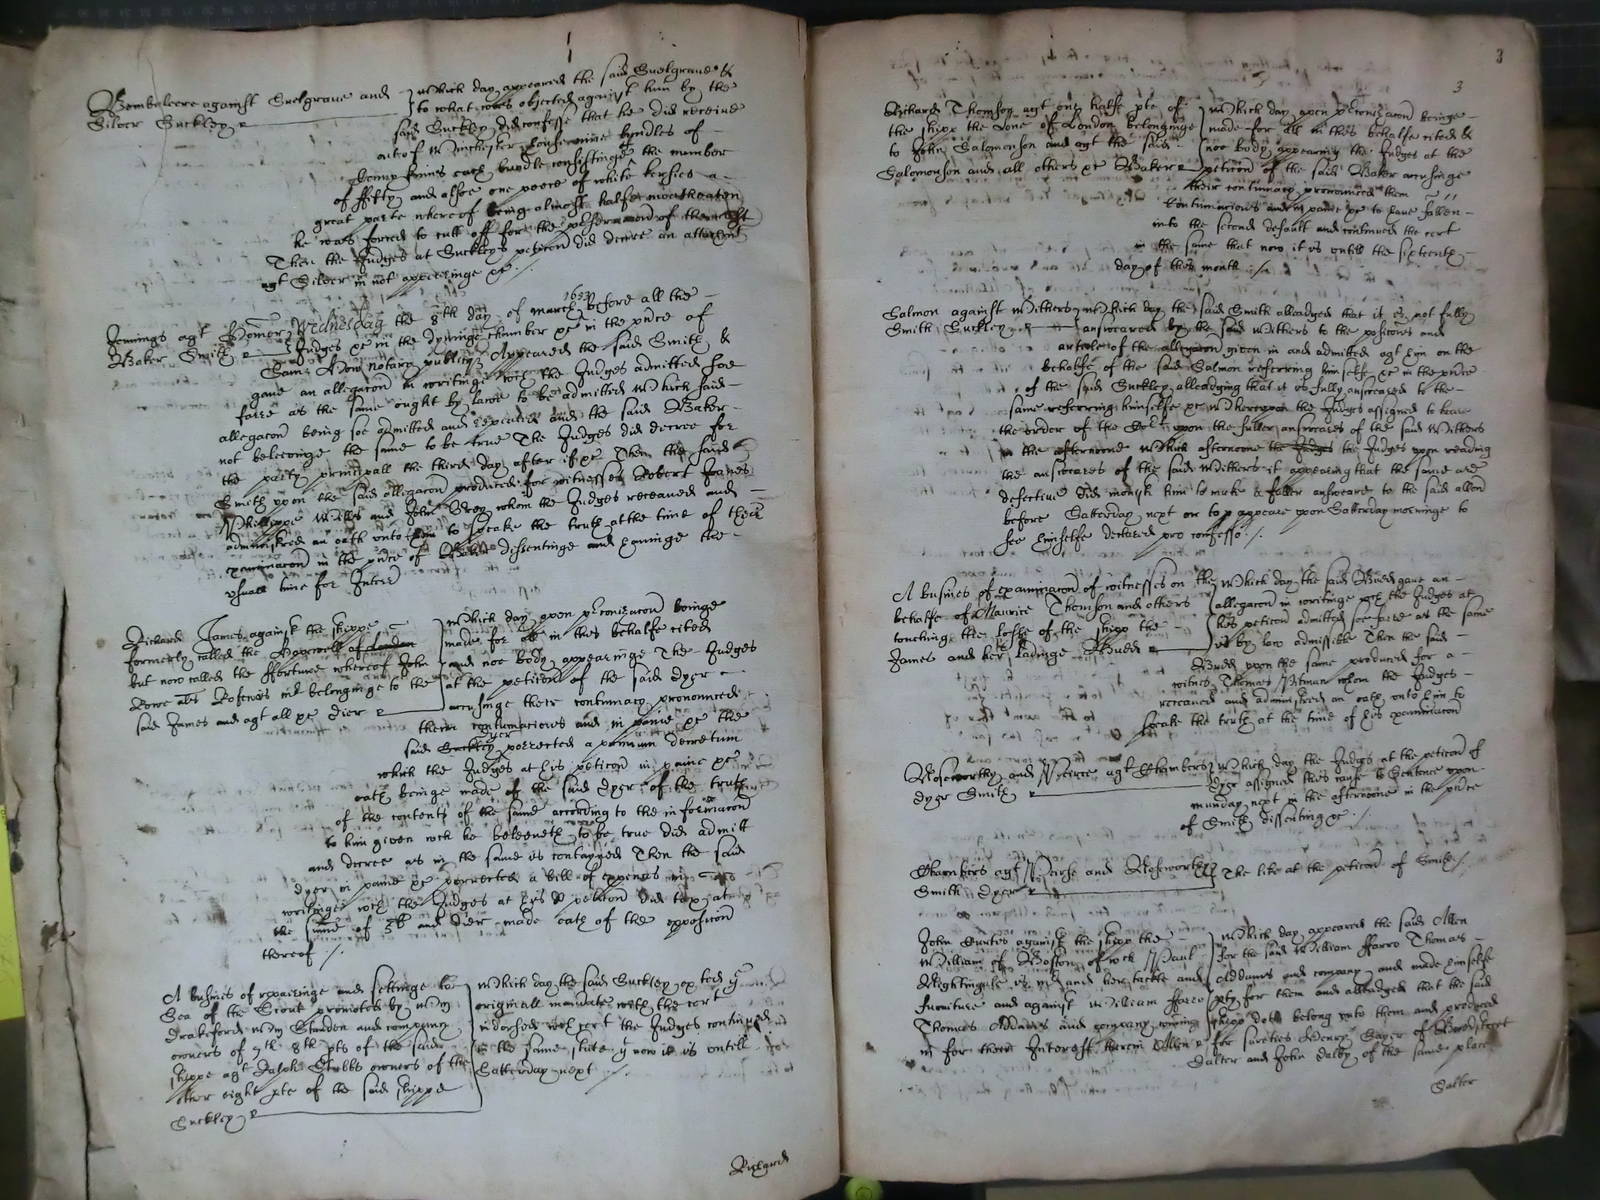 Gombaldeere against Snelgrave and
Silver Suckley
which day appeared the said Snelgrave &
to what was objected against him by the
said Suckley did confesse that he did receive
out of Winchester howse nine bundles of
skinnes each bundle consistinge the number
of ffifty and alsoe one peece of white kersies a
great parte whereof being almost halfe motheaten
he was forced to cutt off for the of the rest
Then the Judges at Suckleys peticon did decree an attachmt
agt Silver in not appearinge &c
Jennings agt Bomer
Baker Smith
Wednesday the 8th day of march 1653 before all the
Judges &c in the dyninge chamber &c in the pñce of
Sam: How notary publiq Appeared the said Smith &
gave an allegacon in writinge wch the Judges admitted soe
farre as the same ought by lawe to be admitted which said
allegacon being soe admitted and repeated and the said Baker
not beleevinge the same to be true The Judges did decree for
the party principall the third day after if &c Then the said
Smith upon the said allegacon produced for witnesses Robert Joanes
Phillippe Wills and John whom the Judges received and
administred an oath unto to speake the truth at the time of their
examinacon in the pñce of Baker dissentinge and the
usuall time for Interr
Richard James against the shippe
formerly called the of London
but now called the ffortune whereof John
Rowe als Rofereis mr belonginge to the
said James and agt all &c Dier
which day upon preconizacon beinge
made for all in this behalfe cited
and noe body appearinge The Judges
at the peticon of the said dyer
accusinge their contumacy pronounced
them contumacious and in paine &c the
said Suckley dyer porrected a primum decretum
which the Judges at his peticon in paine &c
oath beinge made of the said dyer of the truth
of the contents of the same according to the informacon
to him given wch he beleeveth to be true did admitt
and decree as in the same is contayned Then the said
dyer in paine &c porrected a bill of expences in
writinge wch the Judges at his peticon did tax at
the summe of and dier made oath of the exposicon
thereof
A busines of repairinge and settinge to
Sea of the Scout promoted by Wm
Drakeford Wm and company
owners of 7 8th pts of the said
shippe agt Jacob Stubbs owners of the
other eight pte of the said shippe
Suckley
which day the said Suckley exted ye
originall mandate with the cert
indorsed wch cert the Judges continued
in the same state yt now it is untill
Satterday next
Richard
3
3
Richard Thomson agt one halfe pte of
the shipp the Love of London belonginge
to John Salomonson and agt the said
Salomonson and all others &c Baker
which day upon preconizacon beinge
made for all in this behalfe cited &
noe body appearing the Judges at the
peticon of the said Baker accusinge
their contumacy pronounced them
Contumacious and in paine &c to have fallen
into the second default and continued the cert
in the same that now it is untill the sixteenth
day of this month
Salmon against Withers
Smith Suckley
which day the said Smith alleadged that it is not fully
answeared by the said Withers to the posicons and
article of the allegacon given in and admitted agt him on the
behalfe of the said Salmon referring himselfe &c in the pñce
of the said Suckley alleadging that it is fully answeared to the
same referring himselfe &c Whereupon the Judges assigned to heare
the order of the upon the fuller answeares of the said Withers
in the afternoone which afternoone the Judges the Judges upon reading
the answeares of the said Withers it appearing that the same are
defective did monish him to make a fuller answeare to the said allon
before Satterday next or to appeare upon Satterday morninge to
see himselfe declared pro confesso
A busines of examinacon of witnesses on the
behalfe of Maurice Thomson and others
touching the losse of the shipp the
James and her ladinge Budd
which day the said Budd gave an
allegacon in writinge wch the Judges at
his peticon admitted soe farre as the same
is by law admissible Then the said
Budd upon the same produced for a
witnes Thomas Pitman whom the Judges
received and administred an oath unto him to
speake the truth at the time of his examinacon
Bosworthy and Peirce agt Chambers
dyer Smith
which day the Judges at the peticon of
dyer assigned this cause to Sentence upon
munday next in the afternoone in the pñce
of Smith dissenting &c
Chambers agt Peirse and Bosworthy
Smith Dyer
The like at the peticon of Smith
John Curtis against the shipp the
William of Boston of wch Paul
Nightingale is mr and her tackle and
furniture and against William ffarro
Thomas Addams and company coming
in for their Interest therein Allen
which day appeared the said Allen
for the said William ffarro Thomas
Addams and company and made himselfe
pty for them and alleadged that the said
shipp doth belong unto them and produced
for sureties Henry of Breadstreet
Salter and John Dalby of the same place
Salter